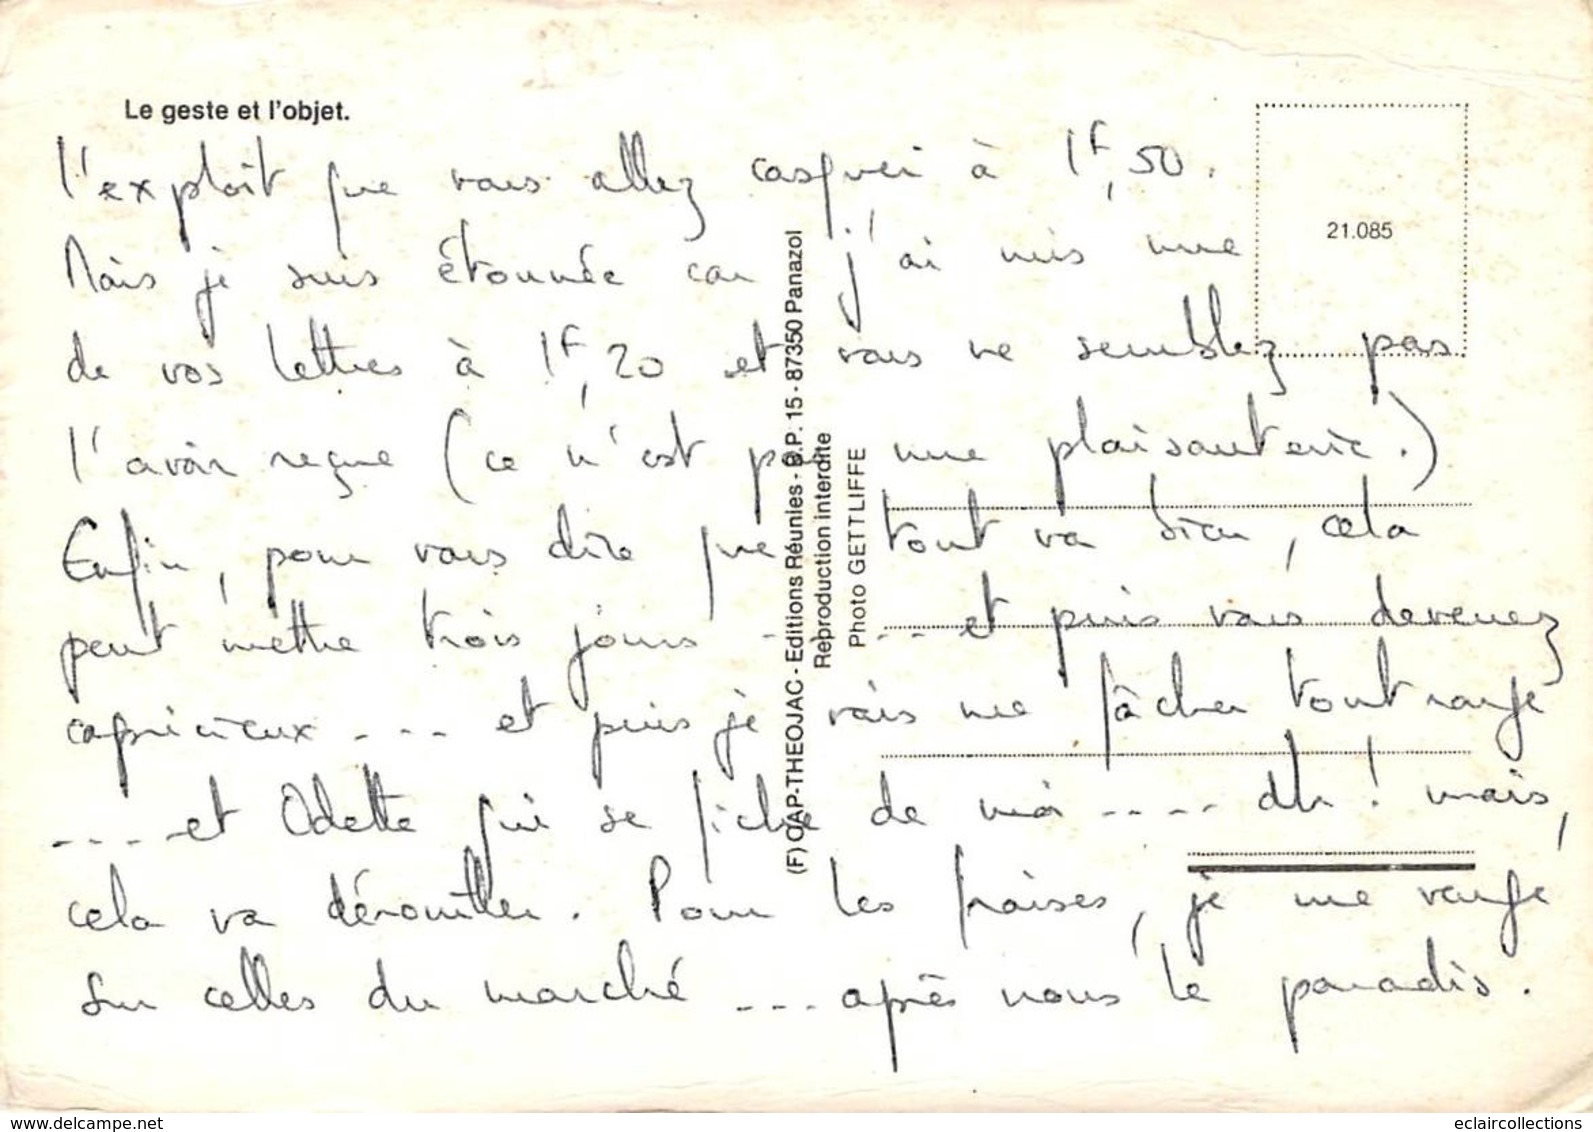 Le geste et l'objet.
l'exploit que vous allez casquer à 1F,50.
Mais je suis étonnée car j'ai mis une
de vos lettres à 1F,20 et vous ne semblez pas
l'avoir reçue (ce n'est pas une plaisanterie.)
Enfin, pour vous dire que tout va bien, cela
peut mettre trois jours ------ et puis vous devenez
capricieux --- et puis je vais me fâcher tout rouge
---- et Odette qui se fiche de moi ---- ah ! mais,
cela va dérouiller. Pour les fraises, je me venge
sur celles du marché --- après nous le paradis.
21.085
(F) CAP-THEOJAC - Editions Réunies - B.P. 15 - 87350 Panazol
Reproduction interdite
Photo GETTLIFFE
www.delcampe.net
eclaircollections